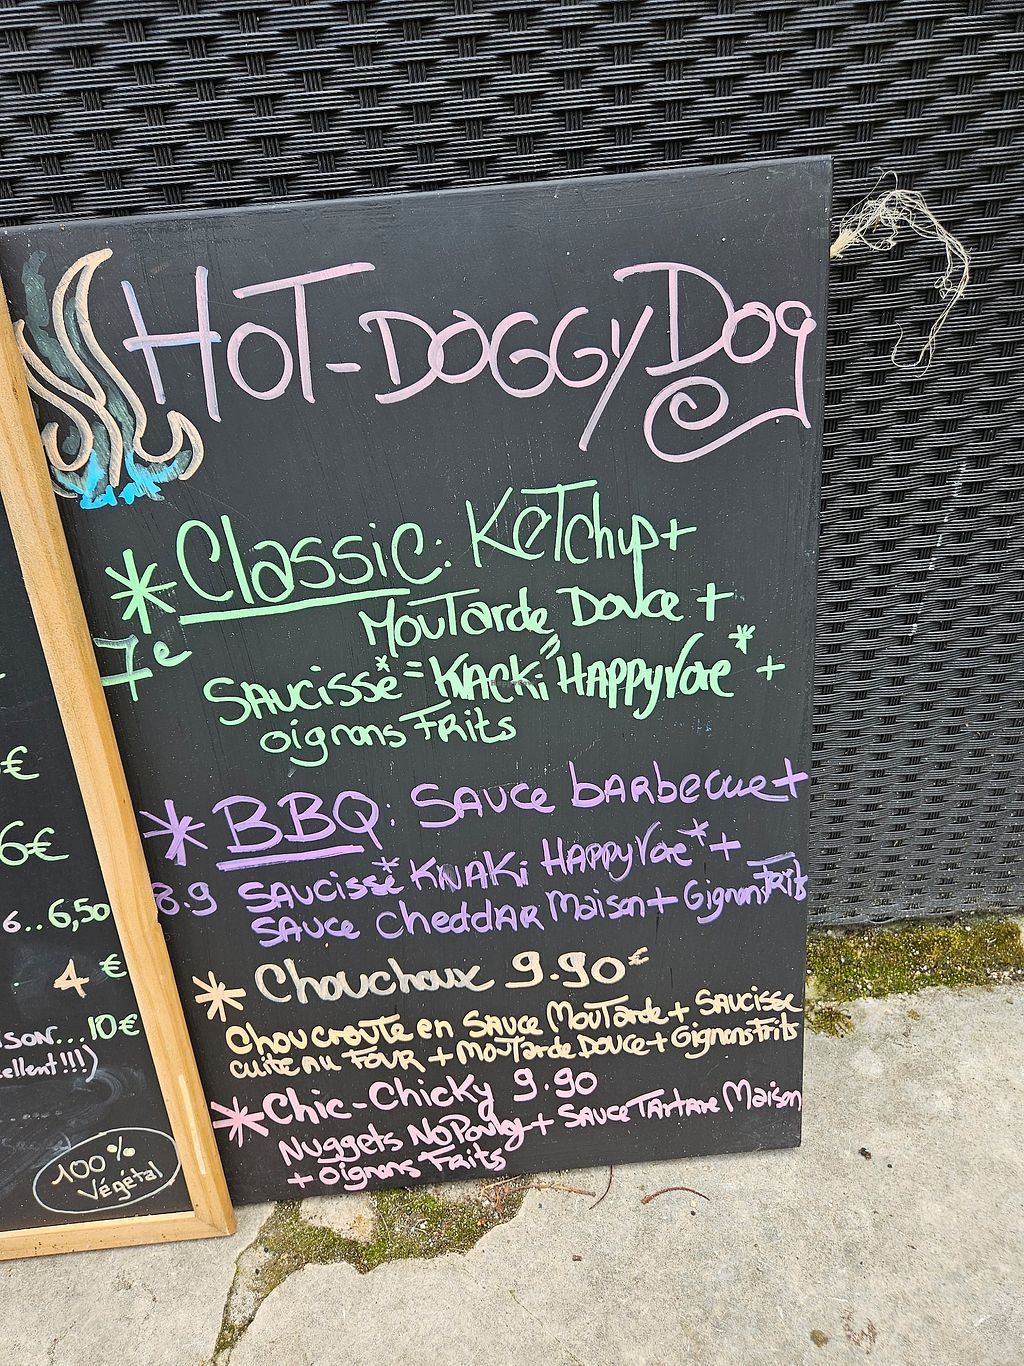 HOT-DOGGY DOG
* Classic: KETchup+
7e
MOUTarde Douce +
SAUCISSe* = "KNACKi" HAPPYVore* +
oignons FRITS
* BBQ: SAUCE bARbecue+
8.9
SAUCISSe* KNAKi HAPPYVore* +
SAUCE CHEDDAR Maison + Oignons FRiTs
* Chouchoux 9.90€
CHOUCROUTE en SAUCE MOUTarde + SAUCISSE
CUITE AU FOUR + MOUTarde DOUCE + Oignons FriTs
* Chic-Chicky 9.90
NUggets NoPouley + SAUCE TARTARE Maison
+ Oignons FRITS
€
6€
6..6,50
4 €
ISON...10€
ellent!!!)
100%
Végétal